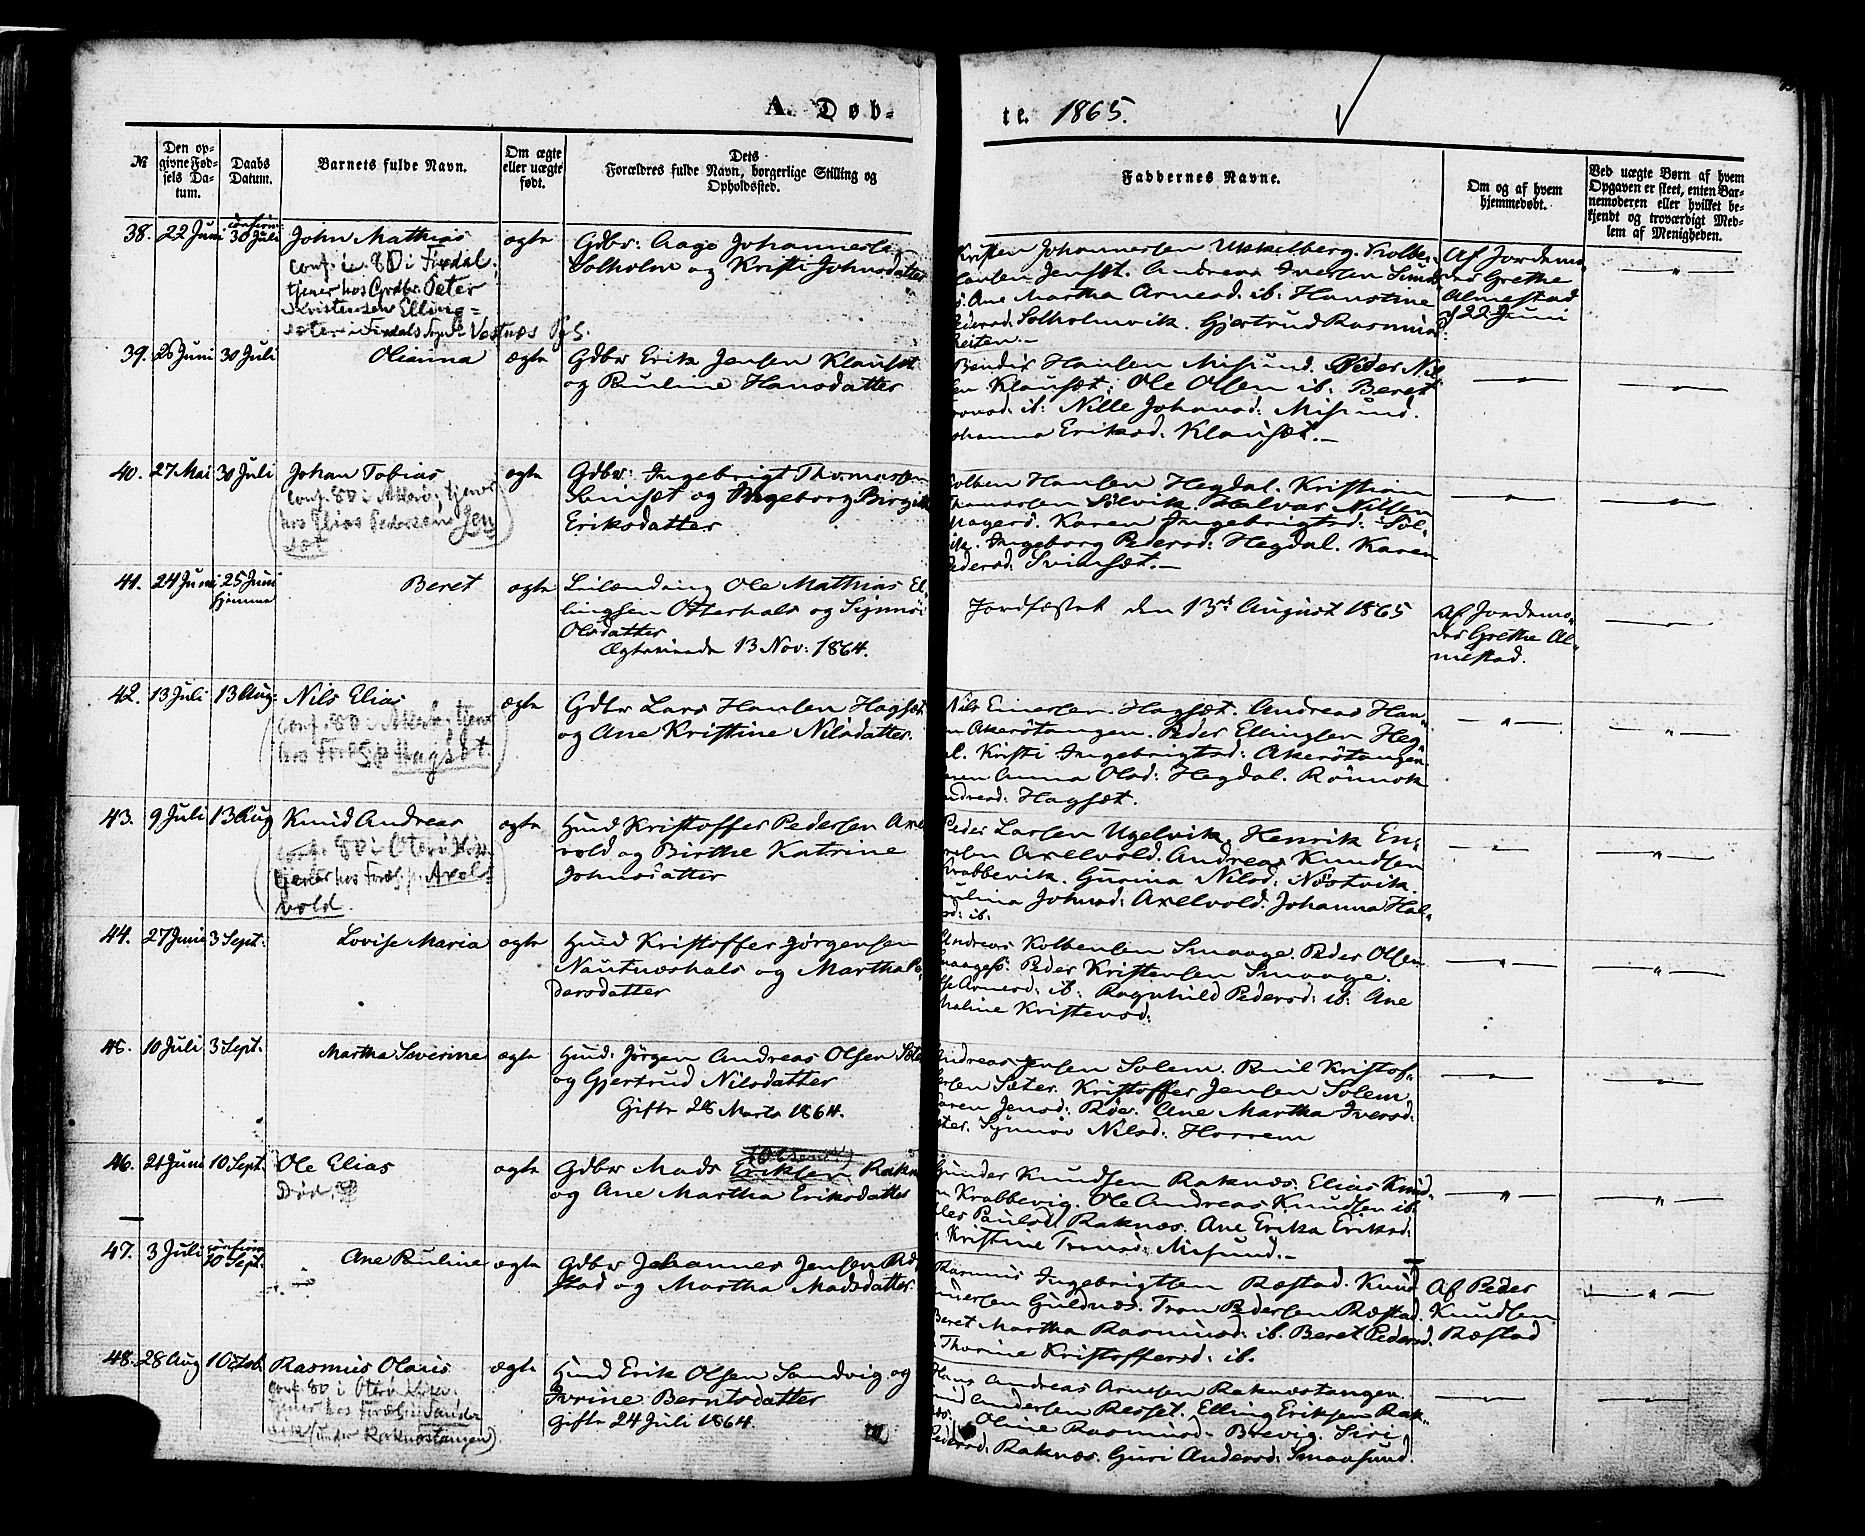 A. Døb-
te. 1865.
№
Den op-
givne Fød-
sels Da-
tum.
Daabs
Datum.
Barnets fulde Navn.
Om ægte
eller uægte
født.
Dets
Forældres fulde Navn, borgerlige Stilling og
Opholdssted.
Faddernes Navne.
Om og af hvem
hjemmedøbt.
Ved uægte Børn af hvem
Opgaven er skeet, enten Bar-
nemoderen eller hvilket be-
kjendt og troværdigt Med-
lem af Menigheden.
38. 22 Juni 30 Juli John Mathias ægte
conf. i. 80 i Fixdal.
tjener hos Grdbr. Peter
Kristensen Elling=
sæter i Fixdals Sogn Vestnæs Pgl.
Gdbr: Aage Johannesen
Solholm og Kristi Johnsdatter
Kristen Johannesen Ukkelberg. Kolben
Jensst. Andreas Iversen
Ane Martha Arnesd. ib: Hanstine
Pedersd. Solholmvik. Gjertrud Rasmusd
Reiten.-
Af Jordemo-
der Grethe
Almestad
d 22 Juni
39. 25 Juni 30 Juli Olianna ægte
Gdbr Erik Jensen Klauset
og Pauline Hansdatter
Hansen Misund. Peder Nil-
sen Klauset; Ole Olsen ib: Beret
ib: Nille Johansd: Misund.
Johanna Eriksd: Klauset.-
40. 27 Mai 30 Juli Johan Tobias ægte
conf. 80 i Akerø, tjener
hos Elias Pedersen Jen
set
Gdbr: Ingebrigt Thomassen
og Ingeborg Birgitte
Eriksdatter
Kolben Hansen Hegdal. Kristian
Thomassen Sølvik. Halvar Nilsen
Magerø. Karen Ingebrigtsd: Søl-
vik. Ingeborg Pedersd: Hegdal. Karen
Pedersd: Svinset.-
41. 24 Juni 25 Juni
hjemme
Beret ægte
Leilending Ole Mathias El-
lingsen Otterhals og Synnøv
Olsdatter
Ægteviede 13 Nov: 1864.
Jordfæstet den 13de August 1865
Af Jordemo-
der Grethe Al-
mestad.
42. 13 Juli 13 Aug: Nils Elias ægte
conf. 80 i Akerø, tjener
hos Foræ Hagset.
Gdbr Lars Hansen Hagset
og Ane Kristine Nilsdatter.
Nils Einersen Hagset. Andreas Han-
sen Akerøtangen. Peder Ellingsen Heg-
dal. Kristi Ingebrigtsd: Akerøtangen.
Karen Anna Olsd: Hegdal. Rønnok
Andersd: Hagset.
43. 9 Juli 13 Aug Knud Andreas ægte
conf. 80 i Oterø Kirke
tjener hos Foræ. p. Axels
vold.
Huus Kristoffer Pedersen Axel
vold og Birthe Katrine
Johnsdatter
Peder Larsen Ugelvik. Henrik En-
Axelvold. Andreas Knudsen
Krabbevik. Gurina Nilsd: Nøstvik.
Paulina Johnsd: Axelvold. Johanna Hal-
sd: ib.
44. 27 Juni 3 Sept: Lovise Maria ægte
Huus Kristoffer Jørgensen
Nautneshals og Martha Pe-
dersdatter
Andreas Kolbensen Smaage. Peder Olsen
Smaages: Peder Kristensen Smaage.
Arnesd: ib: Ragnhild Pedersd: ib: Ane
Kristensd:
45. 10 Juli 3 Sept. Martha Severine ægte
Huus: Jørgen Andreas Olsen Sæter
og Gjertrud Nilsdatter
Gifte 28 Marts 1864.
Andreas Jensen Solem. Paul Kristof-
fersen Sæter. Kristoffer Jensen Solem.
Karen Jensd: Røe. Ane Martha Iversd:
Sæter. Synnøv Nilsd: Horrem
46. 21 Juni 10 Sept. Ole Elias ægte
Død.
Gdbr Mads Eriksen Raknes
og Ane Martha Eriksdatter
Gunder Knudsen Raknes. Elias Knud-
sen Krabbevig. Ole Andreas Knudsen ib.
Paulsd Raknes. Ane Erika Eriksd:
Kristine Tronsd: Misund.-
47. 3 Juli 10 Sept. Ane Pauline ægte
Gdbr Johannes Jensen Ræ-
stad og Martha Madsdatter.
Rasmus Ingebrigtsen Ræstad. Knud
Gunersen Guldnes. Tron Pedersen Ræstad.
Beret Martha Rasmusd: ib. Beret Pedersd.
Thorine Kristoffersd: ib.
Af Peder
Knudsen
Ræstad
48. 28 Aug 1 Octob. Rasmus Olaris ægte
conf. 80 i Oterø Kirke.
tjener hos Foræ i Sande
vik (under Raknestangen)
Huus Erik Olsen Sandvig og
Ivrine Berntsdatter
Gifte 24 Juli 1864.
Hans Andreas Arnesen Raknestangen.
Knud Andersen Resset. Elling Eriksen Rak-
nes. Oline Rasmusd. Brevig. Siri
Pedersd: Raknes. Guri Andersd: Smaasund.